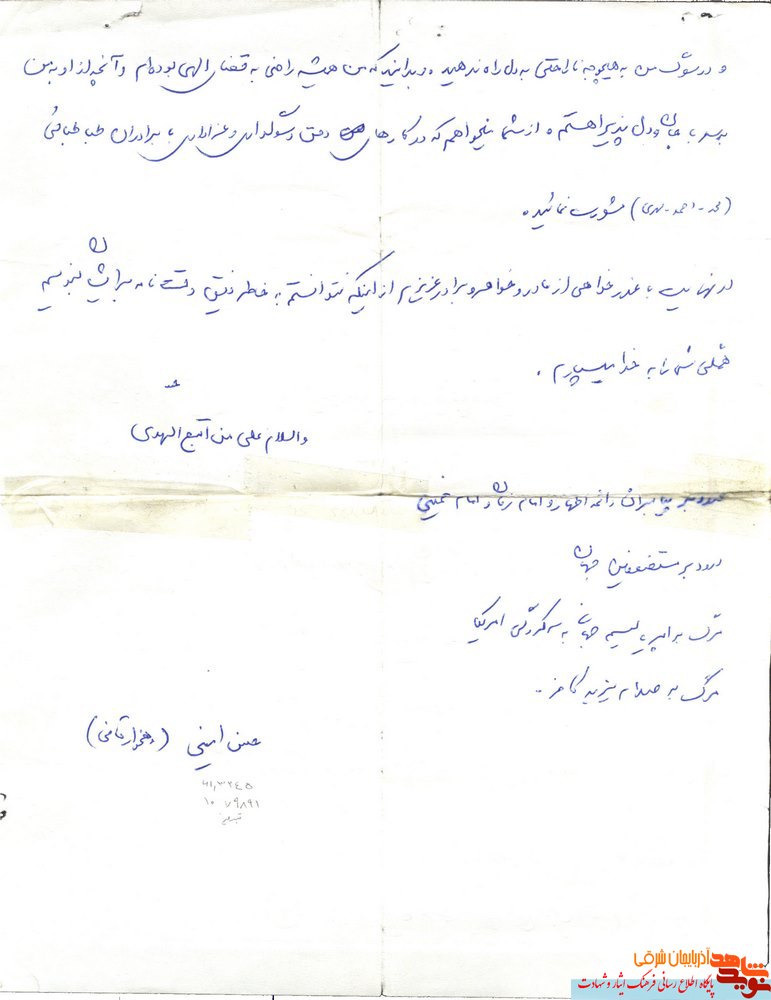 و در سوگ من به هیچوجه ناراحتی به دل راه ندهید و بدانید که من همیشه راضی به قضای الهی بوده‌ام و آنچه از او به من
برسد با جان و دل پذیرا هستم ه از شما میخواهم که در کارهای دفن و سوگواری و عزاداری با برادران طباطبائی
(محمد - احمد - مهدی) مشورت نمائید ه
در نهایت با عذرخواهی از مادر و خواهر و برادر عزیزم از اینکه نتوانستم به خاطر ضیق وقت نامه برایشان بنویسم
همگی شما را به خدا میسپارم .
والسلام علی من اتبع الهدی
درود بر پیامبران و ائمه اطهار و امام زمان و امام خمینی
درود بر مستضعفین جهان
مرگ بر امپریالیسم جهانی به سرکردگی امریکا
مرگ به صدام یزید کافر .
حسن امینی
۶۱٫۳۲۴۵
۱۰ ۷۹۸۹۱
تبریز
نوید شاهد آذربایجان شرقی
پایگاه اطلاع رسانی فرهنگ ایثار و شهادت